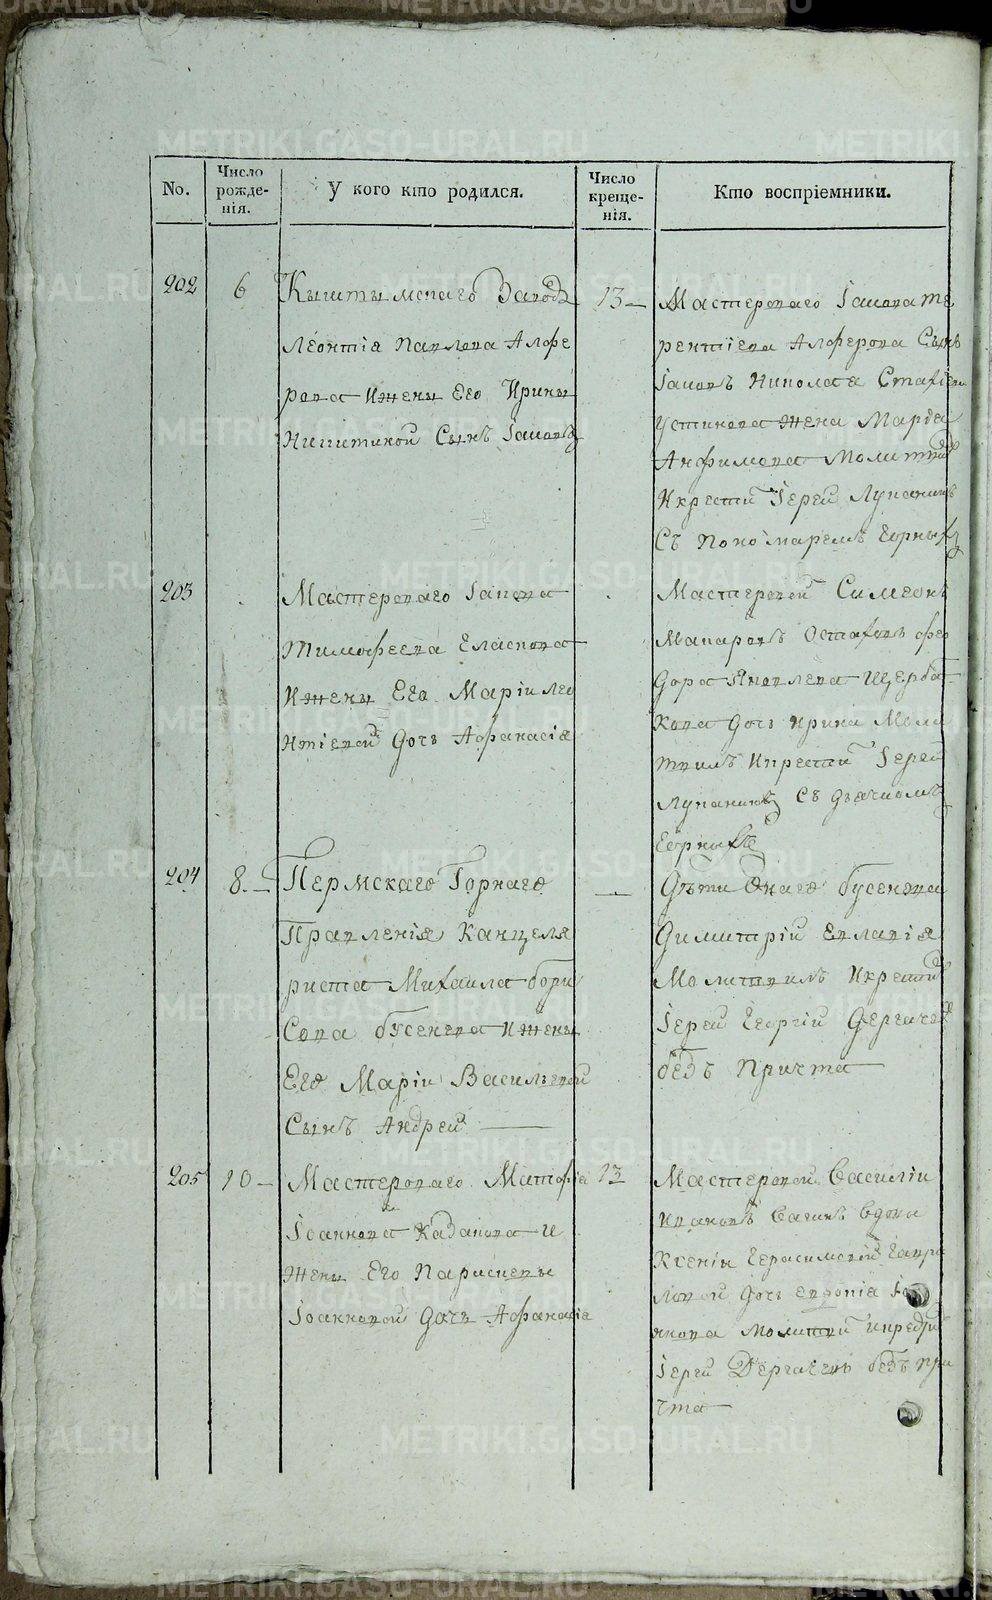 No.
Число рожде-
нія.
У кого кто родился.
Число креще-
нія.
Кто воспріемники.
202
6
Кыштымскаго Завода
Леонтія Павлова Алфе
рова и жены Его Ирины
Никитиной Сынъ Іаковъ
13
Мастероваго Іакова Те
рентіева Алферова Сынъ
Іаковъ Николая
Устинова жена Марѳа
Анфимова Молитвил
и крести Іерей Лукании
Съ пономаремъ Черных
203
Мастероваго Іакова
Тимофеева Еласкова
и жены Его Маріи Лео
нтіевой дочь Афанасія
Мастеровой Симеонъ
Макаровъ Остафовъ фео
дора Яковлева Щерба
кова дочь Ирина Моли
твилъ и крестил Іерей
Луканинъ Съ дьячкомъ
Черных
204
8.
Пермскаго Горнаго
Правленія Канцеля
риста Михаила бори
Сова бусенева и жены
Его Маріи Васильевой
Сынъ Андрей
Дѣти Онаго бусенева
Димитрій Евлавія
Молитвилъ и крестил
Іерей Георгій Дергачев
безъ причта
205
10
Мастероваго Матфія
Іоаннова Казакова и
жены Его Параскевы
Іоанновой дочь Афанасія
13
Мастеровой Василіи
Ивановъ вдовы
Ксеніи Герасимовой Гаври
ловой дочь Евдокіа Іо
аннова Молитвил и крестил
Іерей Дергачевъ безъ при
чта
METRIKI.GASO-URAL.RU